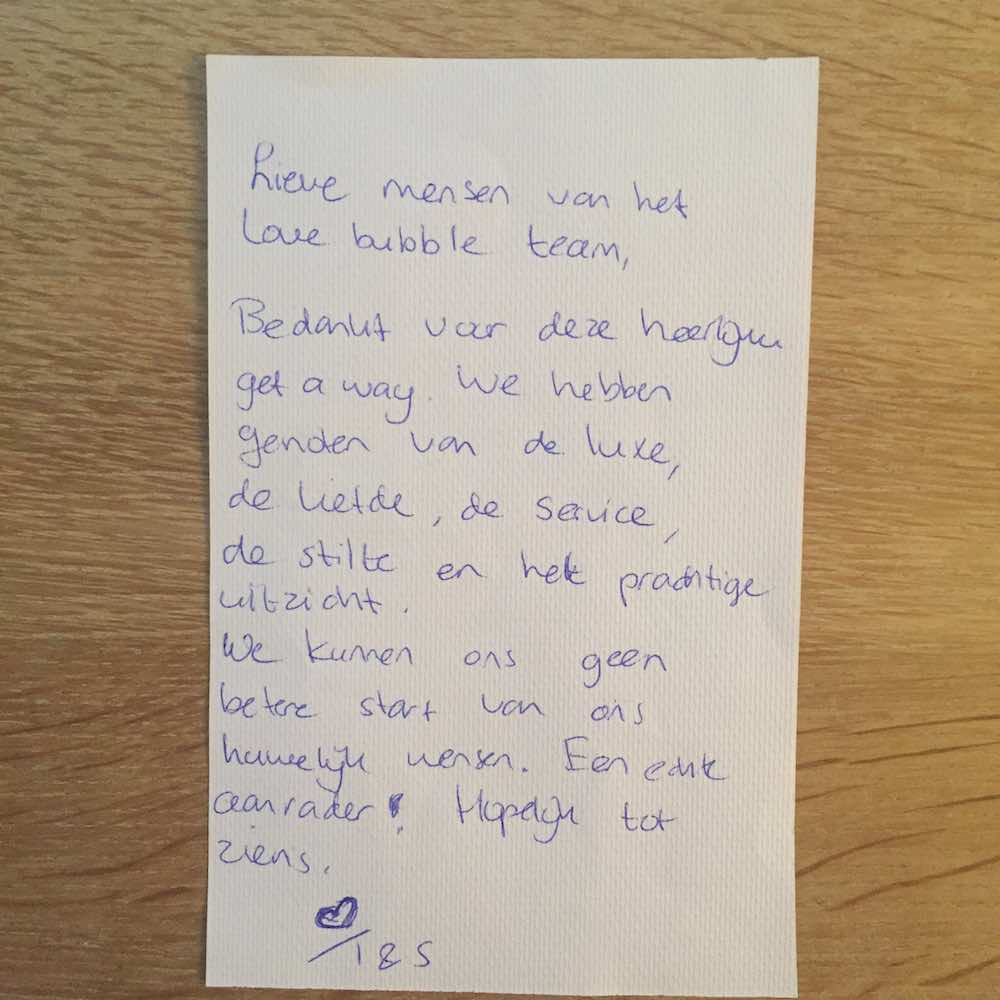 Lieve mensen van het
Love bubble team,
Bedankt voor deze heerlijke
get a way. We hebben
genoten van de luxe,
de liefde, de service,
de stilte en het prachtige
uitzicht.
We kunnen ons geen
betere start van ons
huwelijk wensen. Een echte
aanrader! Hopelijk tot
ziens.
I & S